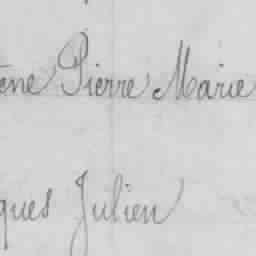 ène Pierre Marie
ques Julien